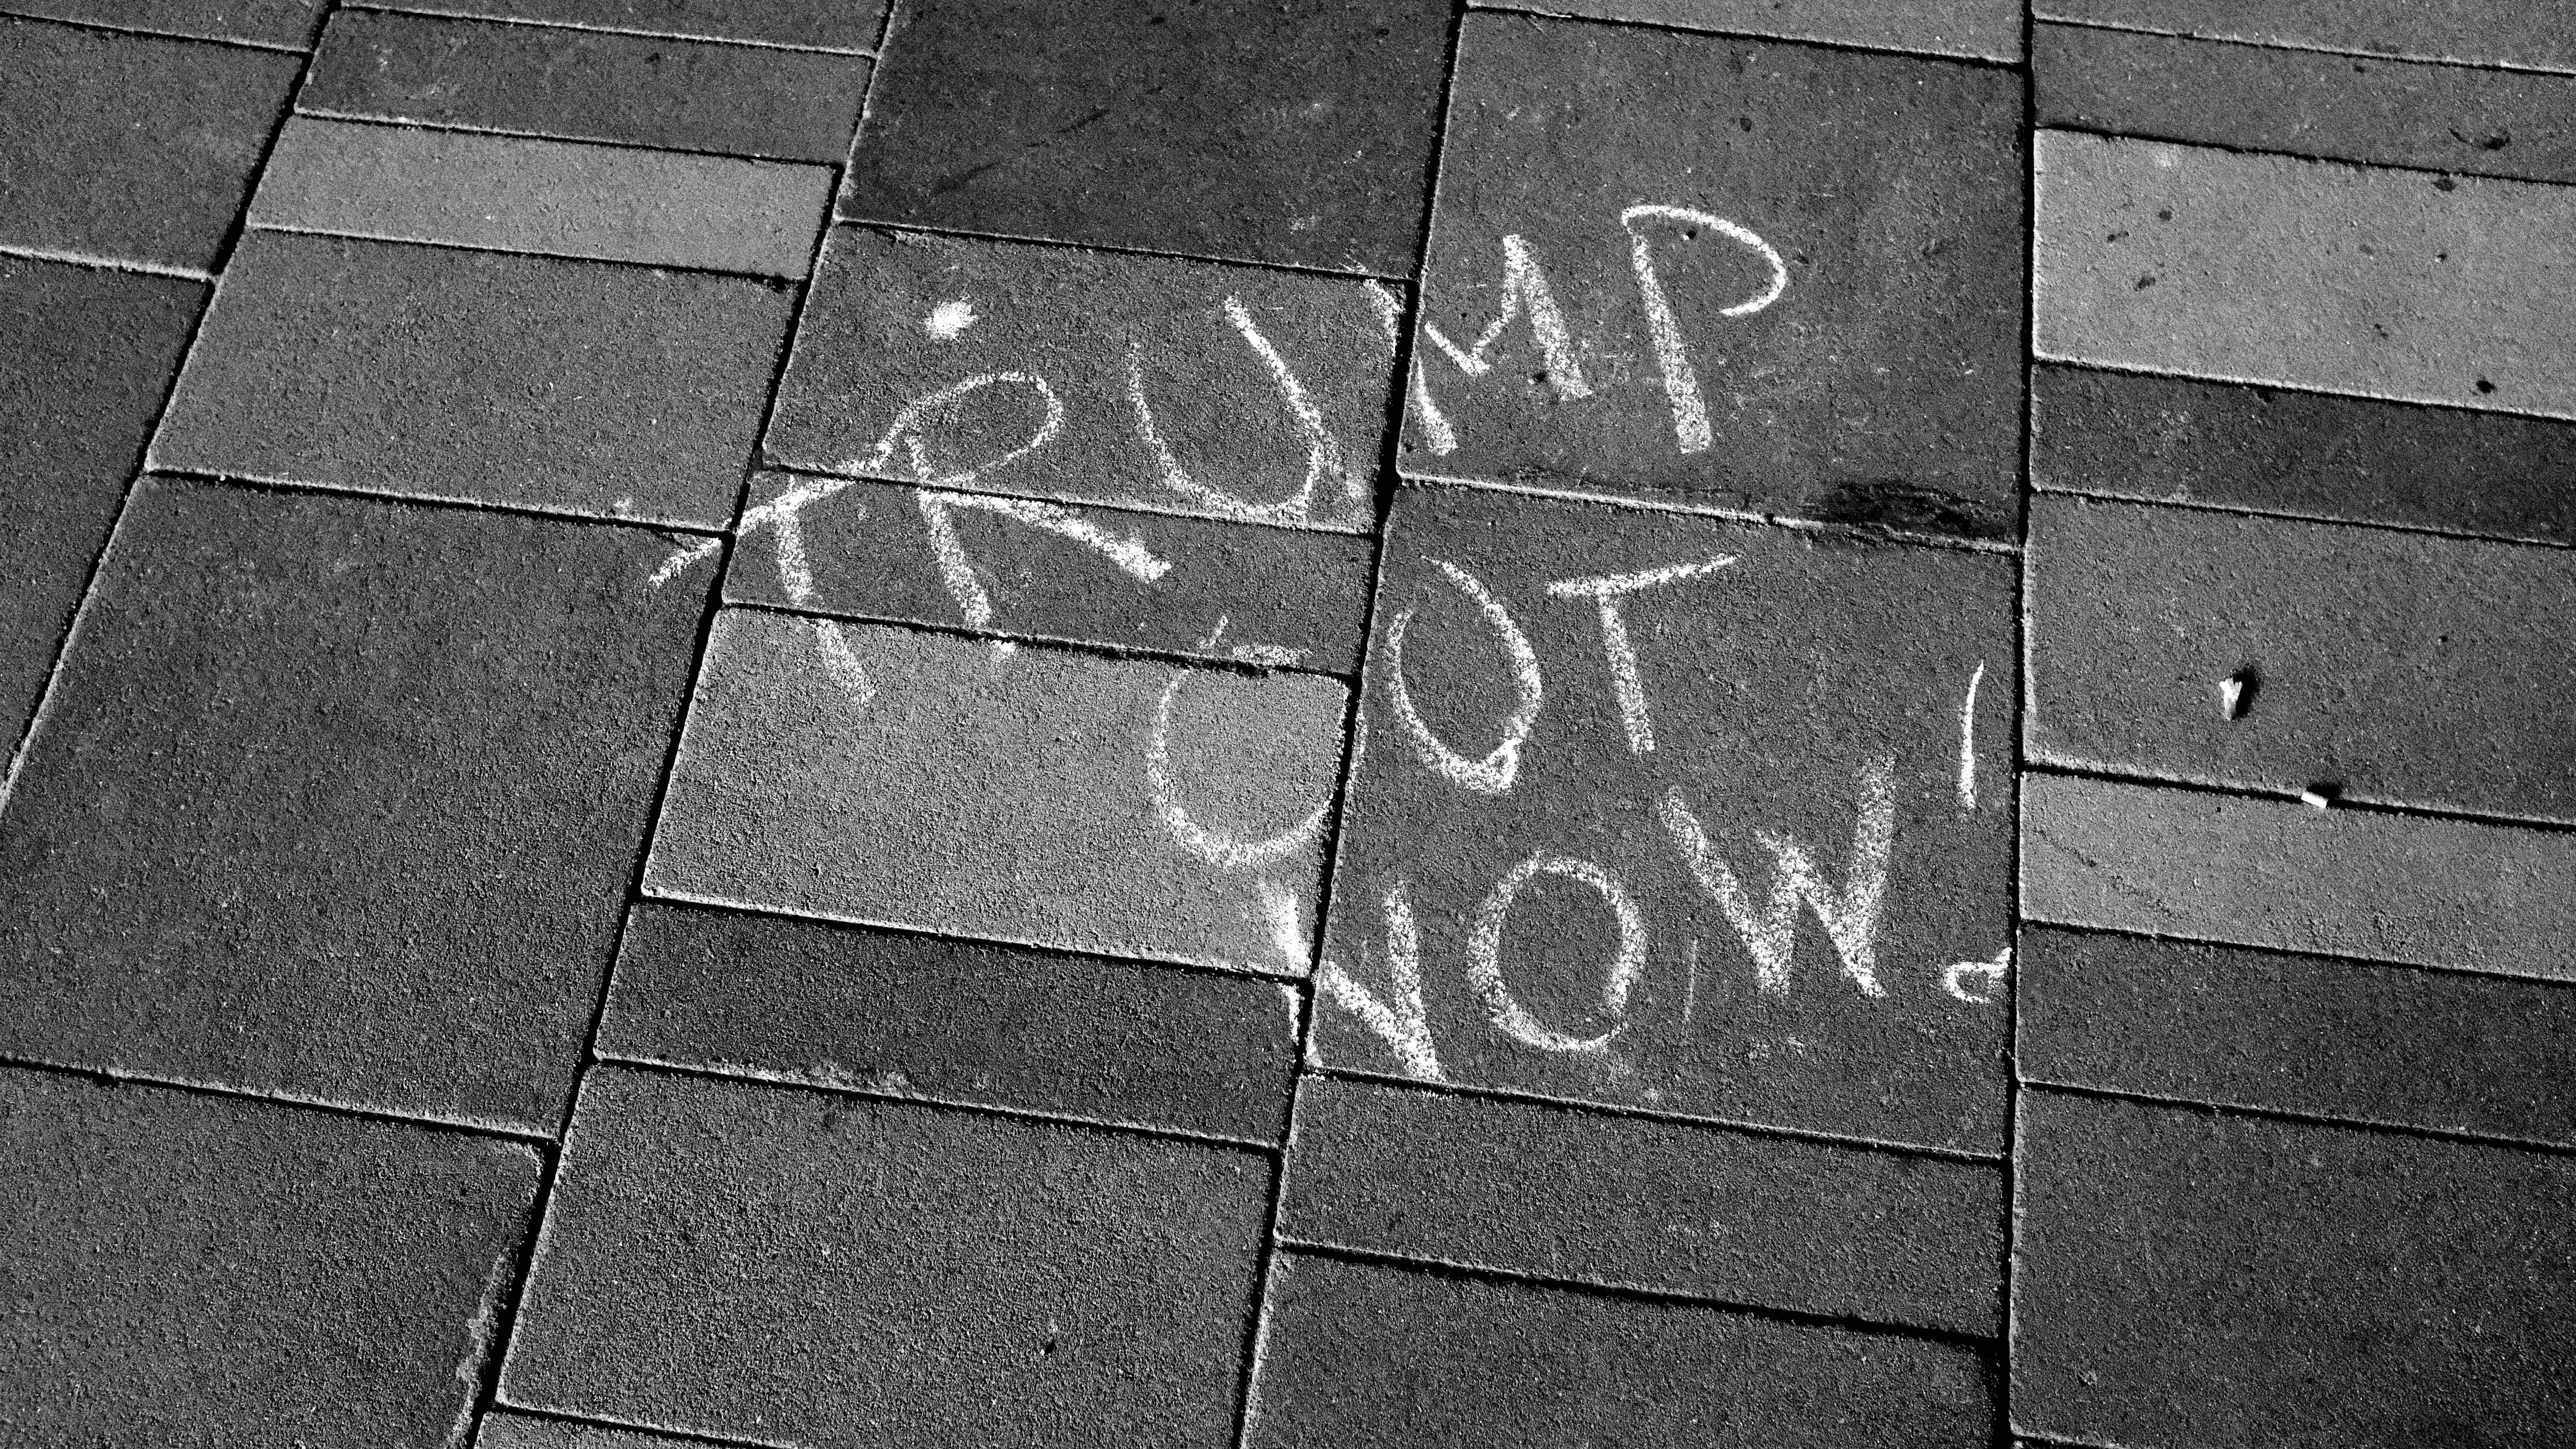 TRUMP
OUT
NOW!